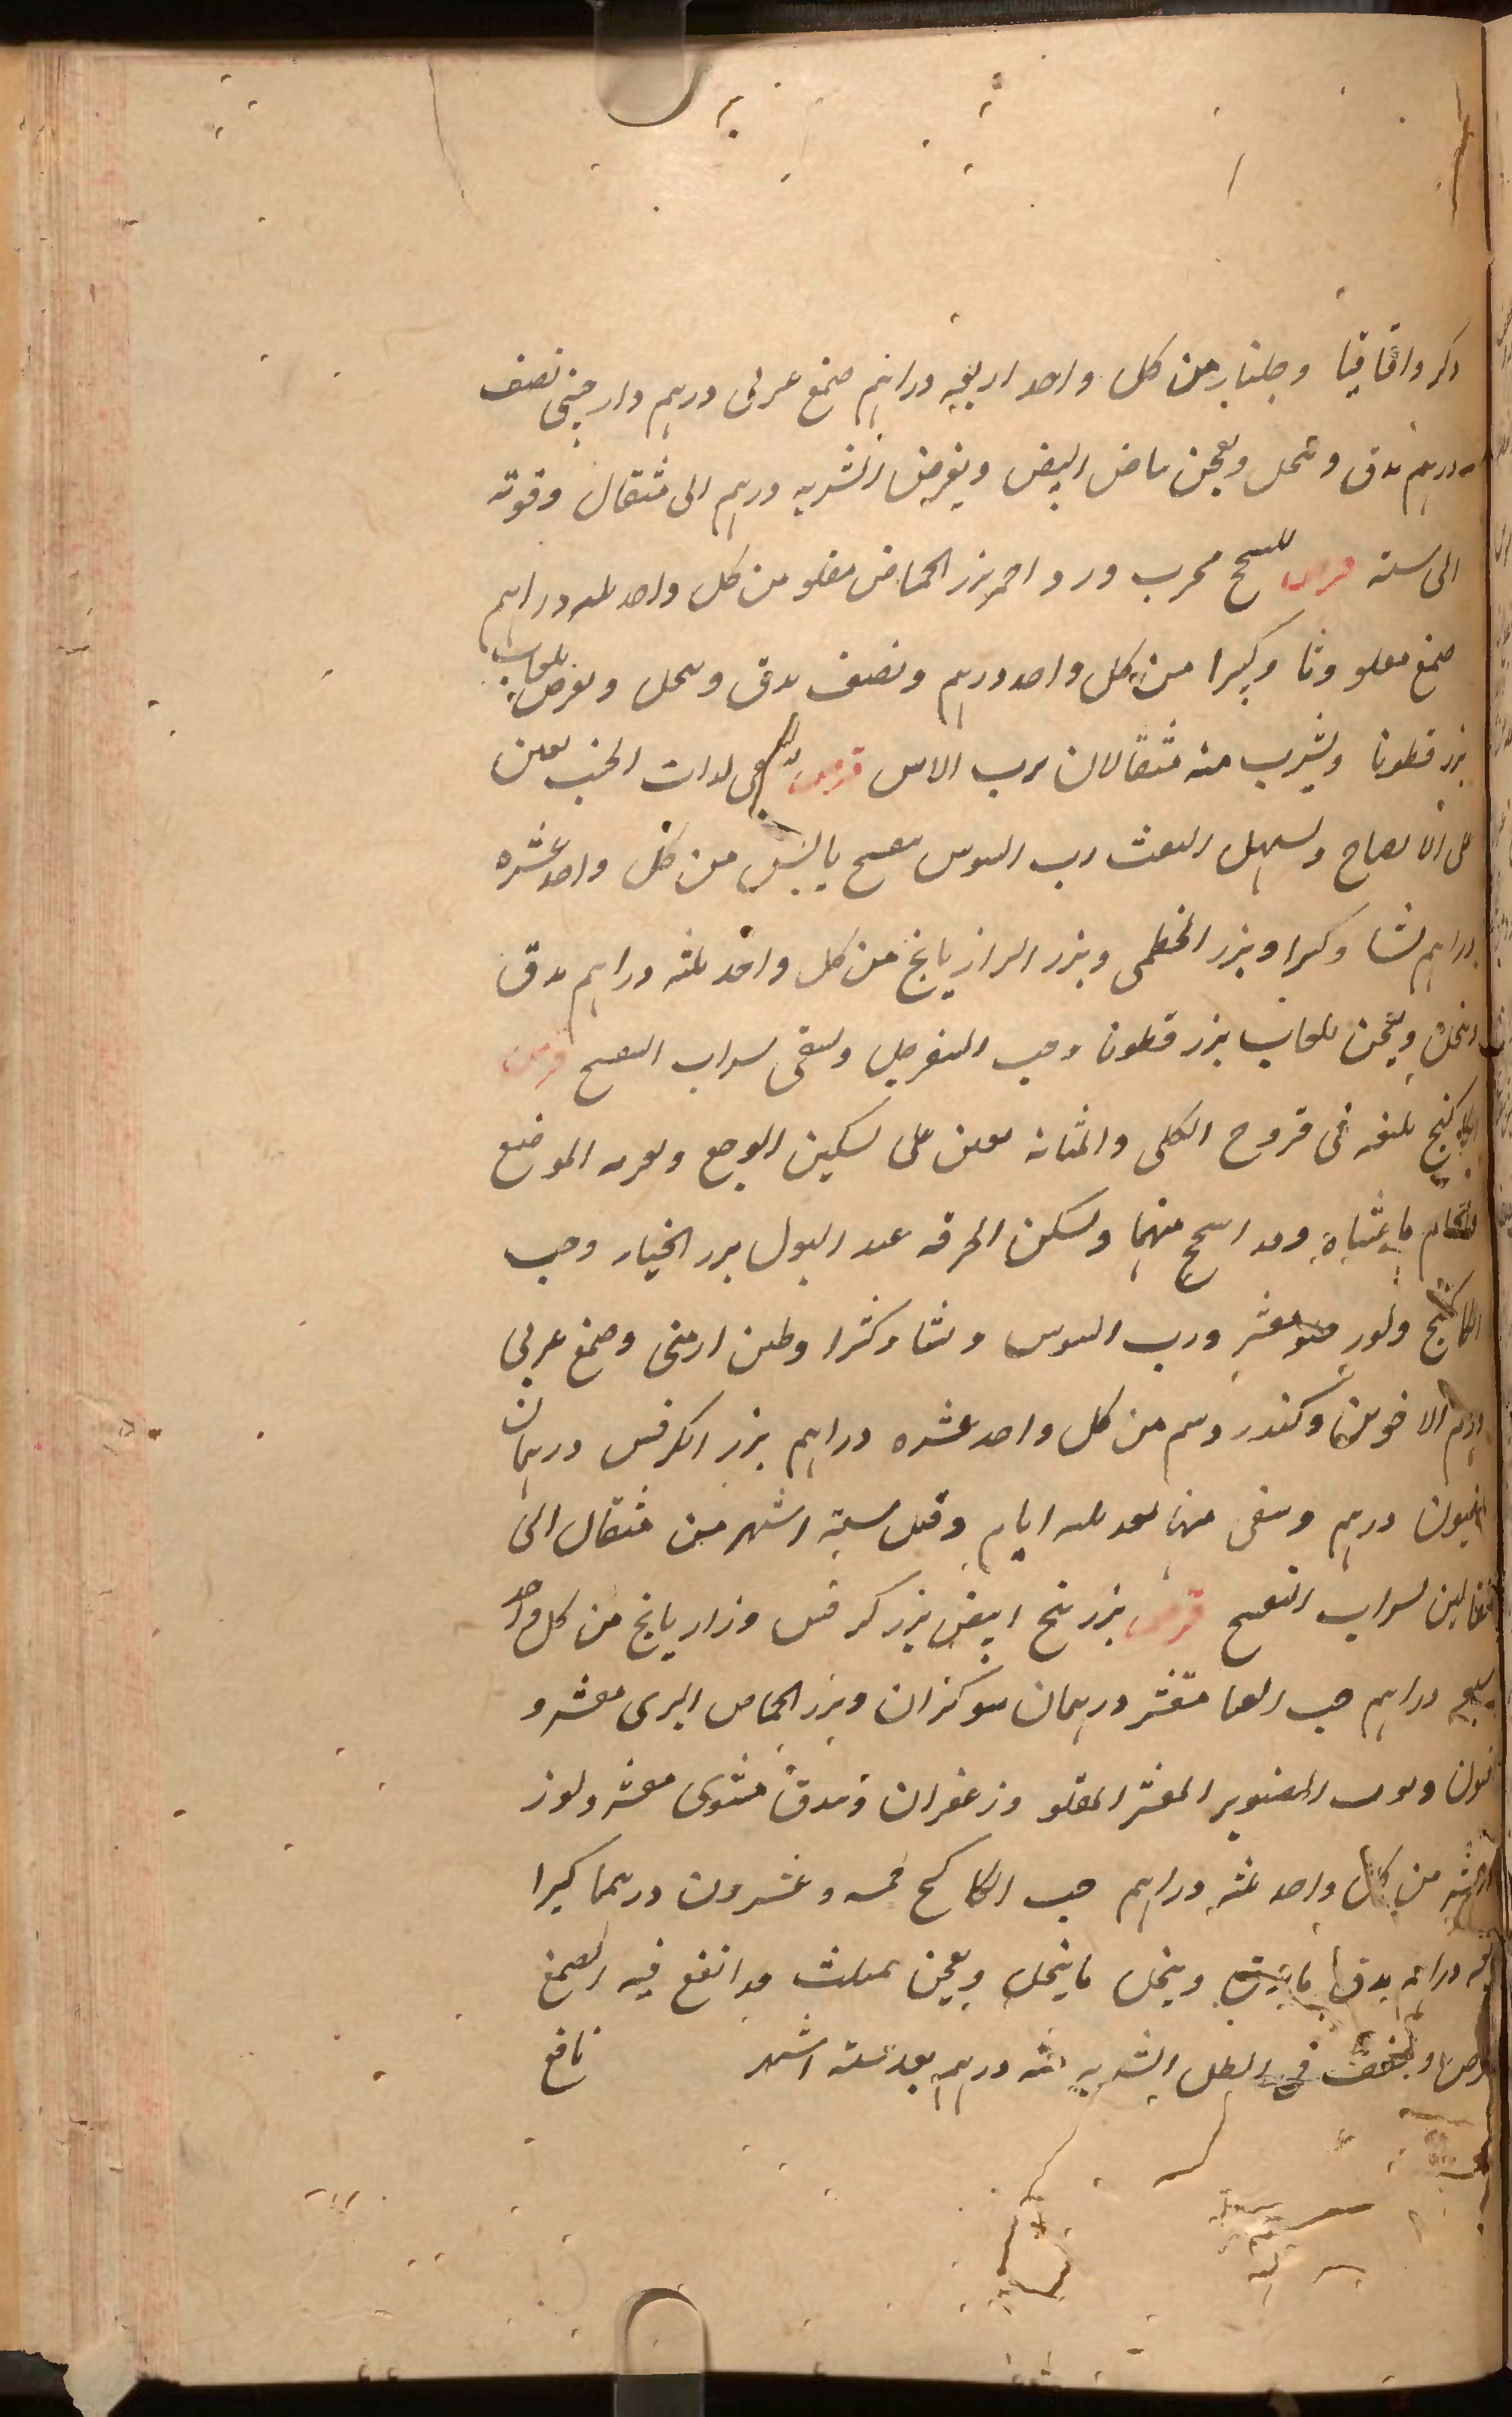 ذكر واقاقيا وجلنار من كل واحد اربعه دراهم صمغ عربى درهم دارچينى نصف
درهم يدق وينخل ويعجن بياض البيض ويقرص الشربه درهم الى مثقال وقوته
الى سنه قرص للسحج مجرب ورد احمر بزر الحماض مقلو من كل واحد ثلثه دراهم
صمغ مقلو ونشا وكثيرا من كل واحد درهم ونصف يدق وينخل ويقرص بلعاب
بزر قطونا ويشرب منه مثقالان برب الاس قرص لذات الجنب يعين
على الانضاج ويسهل النفث رب السوس بنفسج يابس من كل واحد عشره
دراهم نشا وكثيرا وبزر الخطمى وبزر الرازيانج من كل واحد ثلثه دراهم يدق
وينخل ويعجن بلعاب بزر قطونا وحب السفرجل ويسقى بشراب البنفسج قرص
الكاكنج ينفع فى قروح الكلى والمثانه يعين على تسكين الوجع ويعرى الموضع
منهما ويسكن الحرقه عند البول بزر الخيار وحب
الكاكنج ولوز حلو مقشر ورب السوس ونشا وكثيرا وطين ارمنى وصمغ عربى
ودم الاخوين وكندر من كل واحد عشره دراهم بزر الكرفس درهمان
افيون درهم ويسقى منها بعد ثلثه ايام وقبل ستة اشهر من مثقال الى
مثقالين بشراب البنفسج قرص بزر بنج ابيض بزر كرفس ورازيانج من كل واحد
سبعه دراهم حب القثا مقشر درهمان شوكران وبزر الحماض البرى مقشر و
افيون وحب الصنوبر المقشر المقلو وزعفران وبندق مشوى مقشر ولوز
من كل واحد ثلثه دراهم حب الكاكنج خمسه وعشرون درهما كثيرا
دراهم يدق ما يدق وينخل ما ينخل ويعجن بمثلث قد انقع فيه الصمغ
ويقرص ويجفف فى الظل الشربه ثلثه درهم بعد سته اشهر نافع